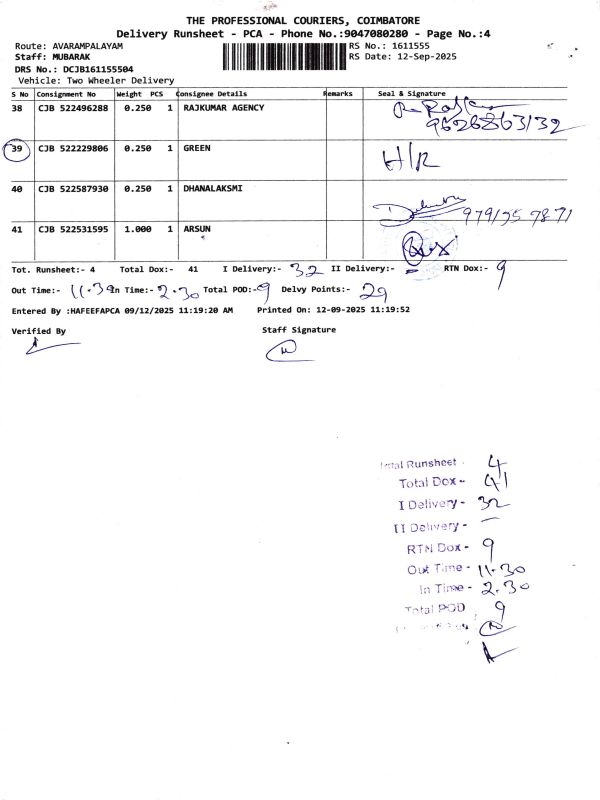 THE PROFESSIONAL COURIERS, COIMBATORE
Delivery Runsheet - PCA - Phone No.:9047080280 - Page No.:4
Route: AVARAMPALAYAM RS No.: 1611555
Staff: MUBARAK RS Date: 12-Sep-2025
DRS No.: DCJB161155504
Vehicle: Two Wheeler Delivery
S No Consignment No Weight PCS Consignee Details Remarks Seal & Signature
38 CJB 522496288 0.250 1 RAJKUMAR AGENCY
9626863132
39 CJB 522229806 0.250 1 GREEN H/R
40 CJB 522587930 0.250 1 DHANALAKSMI
41 CJB 522531595 1.000 1 ARSUN
Tot. Runsheet:- 4 Total Dox:- 41 I Delivery:- 32 II Delivery:- - RTN Dox:- 9
Out Time:- 11.30 In Time:- 2.30 Total POD:- 9 Delvy Points:- 29
Entered By :HAFEEFAPCA 09/12/2025 11:19:20 AM Printed On: 12-09-2025 11:19:52
Verified By Staff Signature
Total Runsheet - 4
Total Dox - 41
I Delivery - 32
II Delivery - -
RTN Dox - 9
Out Time - 11.30
In Time - 2.30
Total POD 9